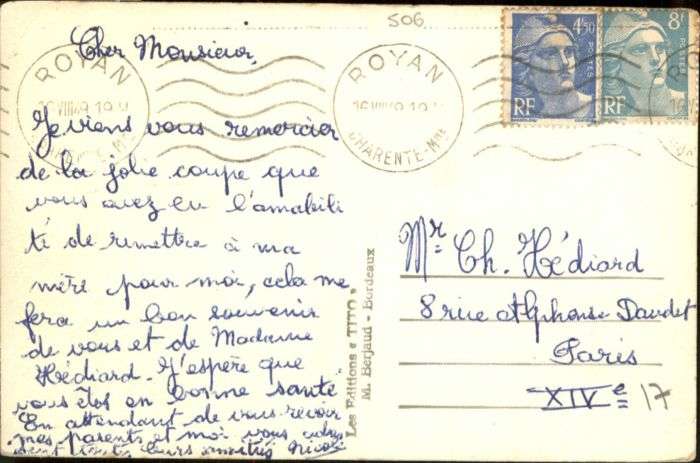 506
Cher Monsieur,
Je viens vous remercier
de la jolie coupe que
vous avez eu l'amabili
té de remettre à ma
mère pour moi, cela me
fera un bon souvenir
de vous et de Madame
Hédiard. J'espère que
vous êtes en bonne santé
En attendant de vous revoir
mes parents et moi vous
leurs amitiés
ROYAN
CHARENTE-Mme
ROYAN
16 VIII 49 19
CHARENTE-Mme
4f50
POSTES
RF
8f
POSTES
RF
Les Editions « TITO »
M. Berjaud - Bordeaux
Mr. Ch. Hédiard
8 rue Alphonse Daudet
Paris
XIVe 17